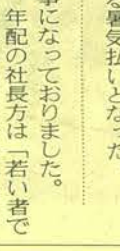 る暑気払いとなった
事になっておりました。
年配の社長方は「若い者で